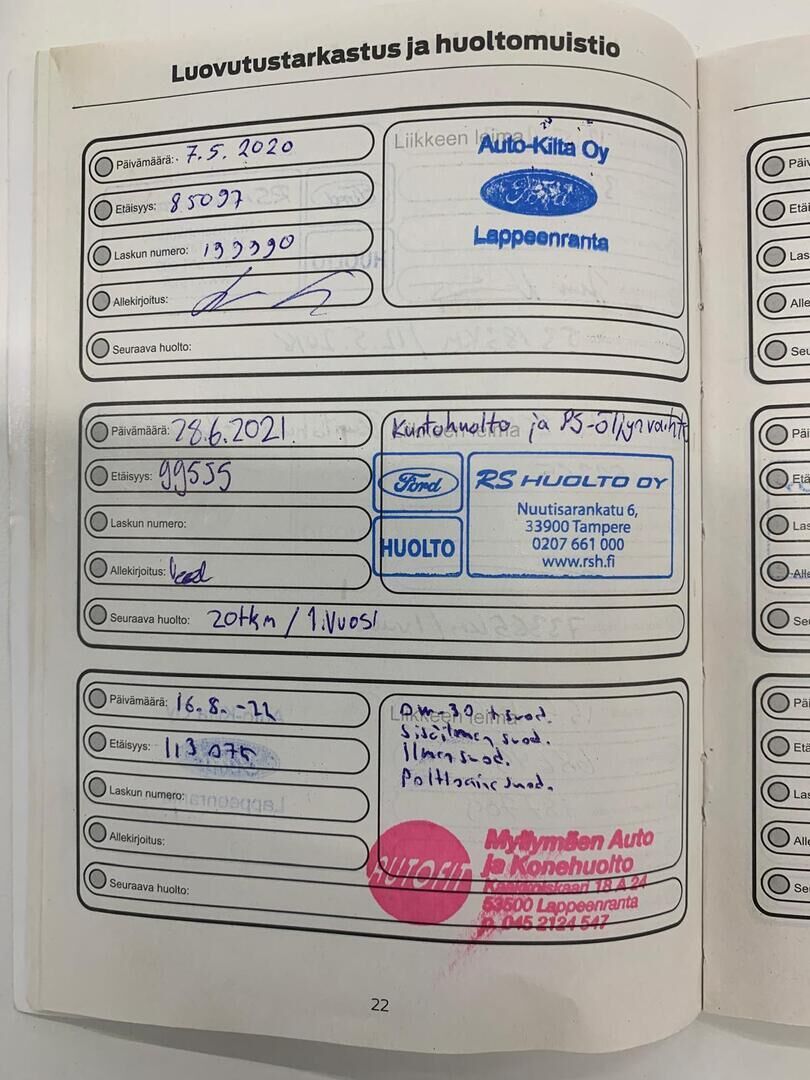 Luovutustarkastus ja huoltomuistio
Päivämäärä: 7.5. 2020
Etäisyys: 85097
Laskun numero: 199990
Allekirjoitus:
Seuraava huolto:
Liikkeen leima
Auto-Kilta Oy
Ford
Lappeenranta
Päivämäärä: 28.6.2021
Etäisyys: 99555
Laskun numero:
Allekirjoitus:
Seuraava huolto: 20tkm / 1.vuosi
Kuntohuolto ja PS-öljynvaihto
Liikkeen leima
Ford
HUOLTO
RS HUOLTO OY
Nuutisarankatu 6,
33900 Tampere
0207 661 000
www.rsh.fi
Päivämäärä: 16.8.-22
Etäisyys: 113 075
Laskun numero:
Allekirjoitus:
Seuraava huolto:
0W-30 + suod.
Liikkeen leima
Sisäilman suod.
Ilman suod.
Polttoaine suod.
AUTOFIT
Myllymäen Auto
ja Konehuolto
18 A 24
53500 Lappeenranta
p. 045 2124 547
22